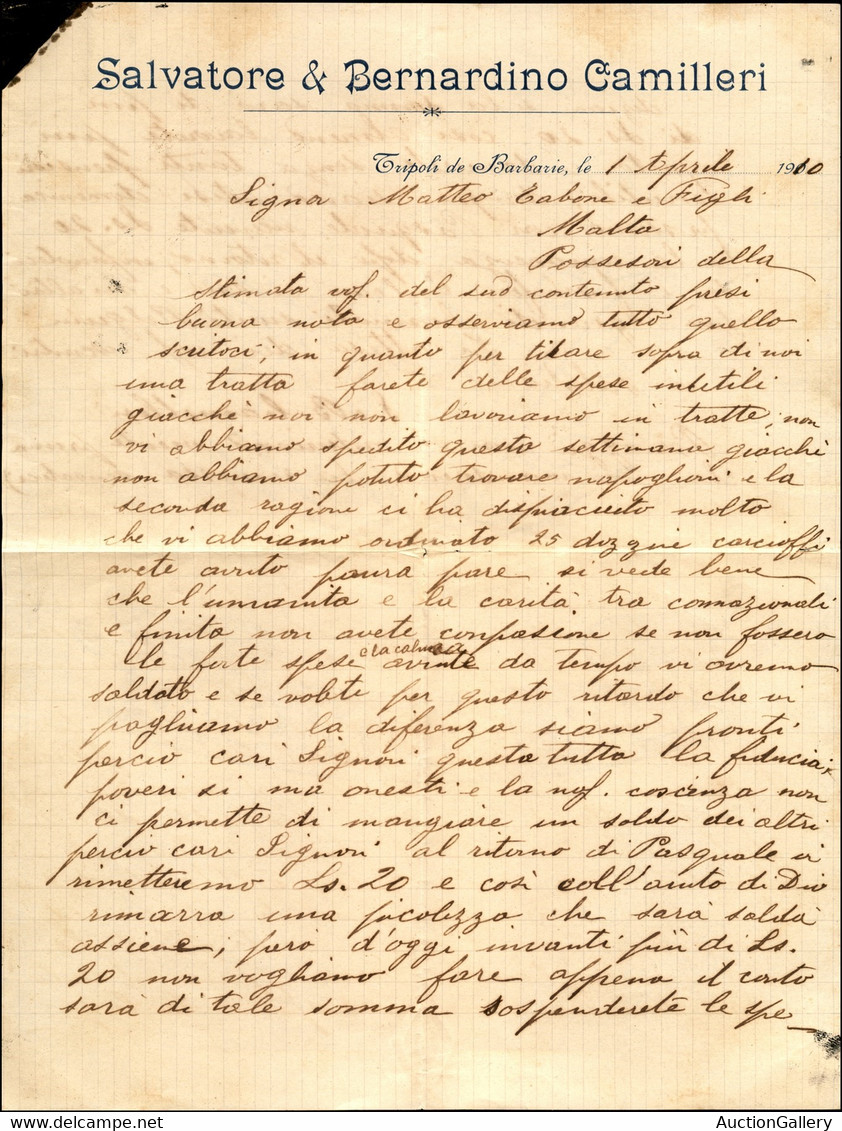 Salvatore & Bernardino Camilleri
Tripoli de Barbarie, le 1 Aprile 1910
Signor Matteo Tabone e Figli
Malta
Possesori della
Stimata vos. del sud contenuto presi
buona nota e osserviamo tutto quello
scritoci; in quanto per titare sopra di noi
una tratta farete delle spese inutili
giacchè noi non lavoriamo in tratte, non
vi abbiamo spedito questa settimana giacchè
non abbiamo potuto trovare napoglioni e la
seconda ragione ci ha dispiaciuto molto
che vi abbiamo ordinato 25 dozzine carcioffi
avete avuto paura pare si vede bene
che l'umanita e la carità tra connazionali
e finita non avete conpasione se non fossero
le forte spese e la calma avute da tempo vi avremo
saldato e se volete per questo ritardo che vi
pagliuamo la diferenza siamo pronti
percio cari Signori questa tutta la fiducia;
poveri si ma onesti e la nos. coscenza non
ci permette di mangiare un soldo dei altri
percio cari Signori al ritorno di Pasquale vi
rimetteremo Ls. 20 e così coll'aiuto di Dio
rimarra una picolezza che sarà salda
assieme; però d'oggi invanti più di Ls.
20 non vogliamo fare appena il conto
sarà di tale somma sospenderete le spe
AuctionGallery